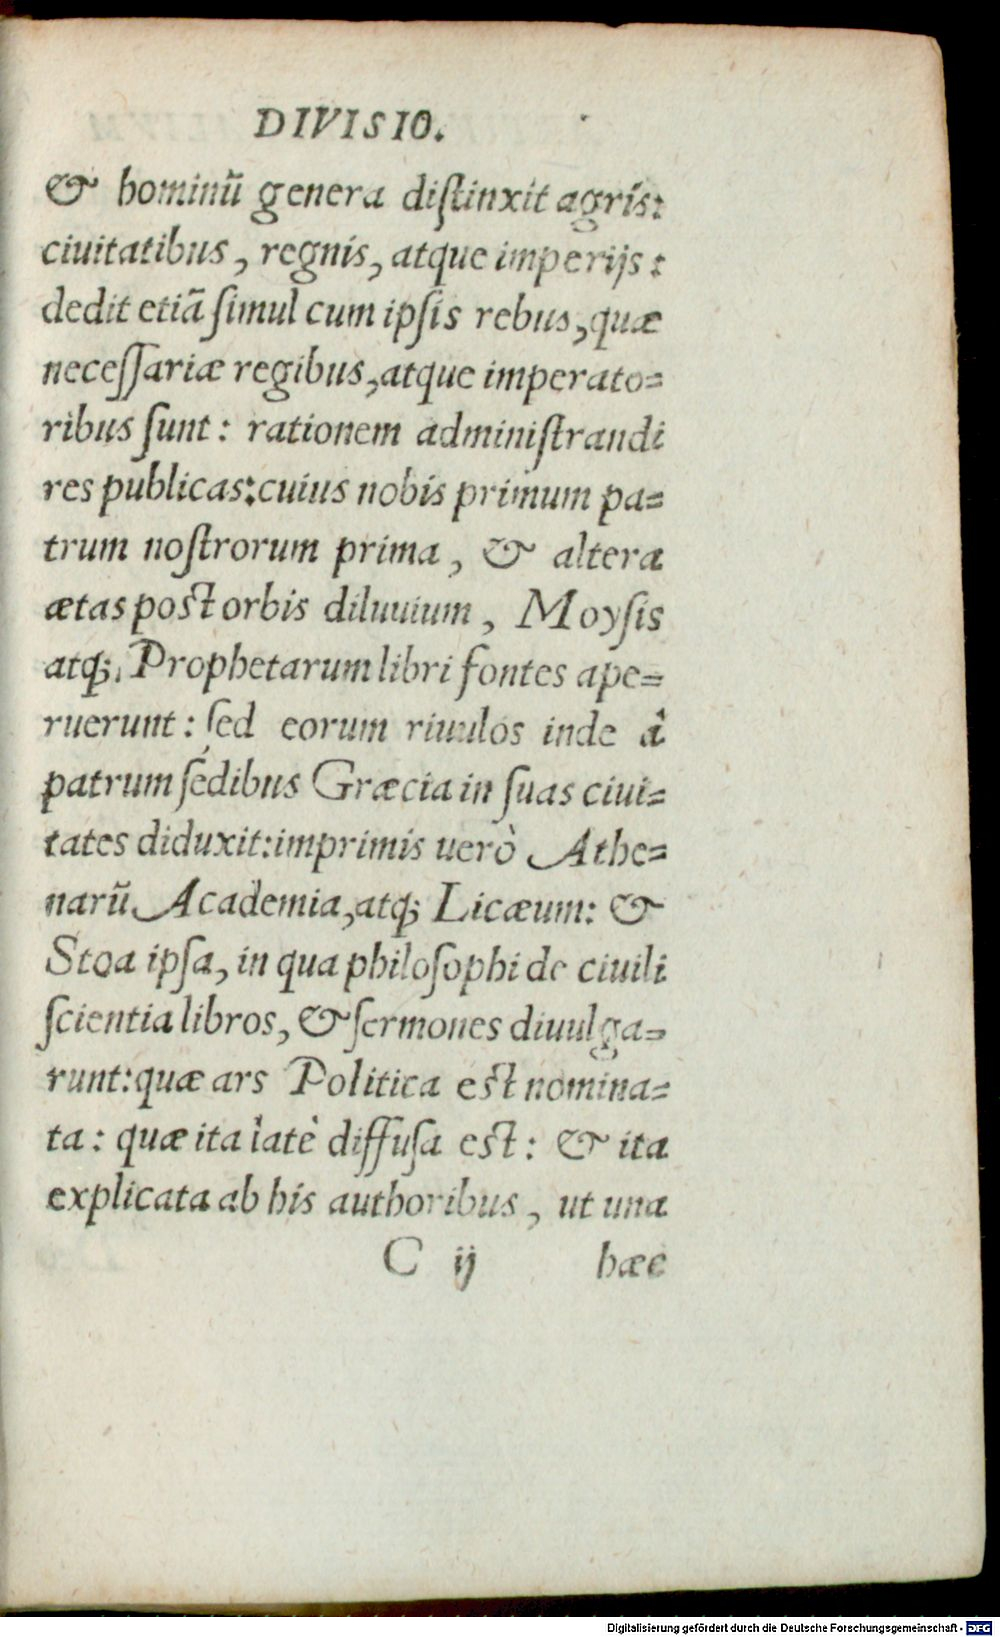 DIVISIO.
& hominũ genera diſtinxit agris:
ciuitatibus, regnis, atque imperijs:
dedit etiã ſimul cum ipſis rebus, quæ
neceſſariæ regibus, atque imperato=
ribus ſunt: rationem adminiſtrandi
res publicas: cuius nobis primum pa=
trum noſtrorum prima, & altera
ætas poſt orbis diluuium, Moyſis
atq; Prophetarum libri fontes ape=
ruerunt: ſed eorum riuulos inde â
patrum ſedibus Græcia in ſuas ciui=
tates diduxit: imprimis uerò Athe=
narũ Academia, atq; Licæum: &
Stoa ipſa, in qua philoſophi de ciuili
ſcientia libros, & ſermones diuulga=
runt: quæ ars Politica eſt nomina=
ta: quæ ita latè diffuſa eſt: & ita
explicata ab his authoribus, ut una
C ij hæc
Digitalisierung gefördert durch die Deutsche Forschungsgemeinschaft - DFG